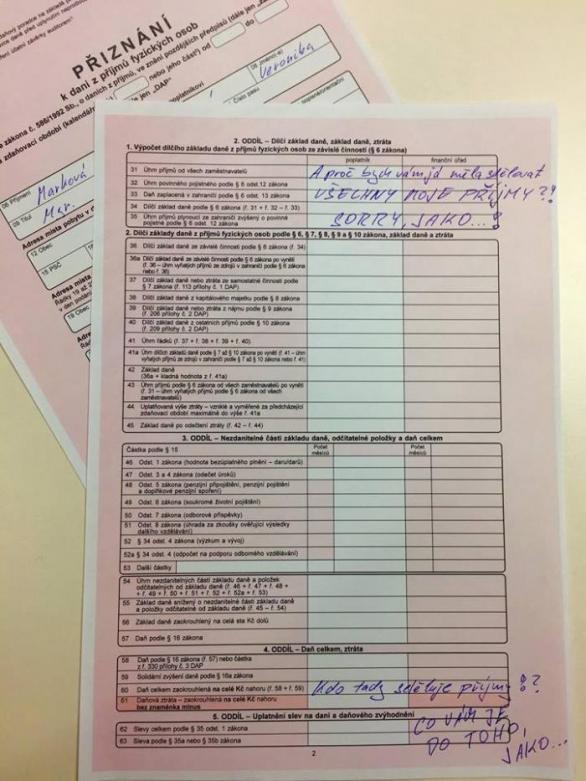 PŘIZNÁNÍ
k dani z příjmů fyzických osob
zákona č. 586/1992 Sb., o daních z příjmů, ve znění pozdějších předpisů (dále jen „zákon“)
zdaňovací období (kalendářní
nebo jeho část) od
do
dále jen „DAP“
Veronika
06 Příjmení
Marková
09 Titul
Mgr.
Adresa místa pobytu v
12 Obec
15 PSČ
Adresa místa
19 Obec
2. ODDÍL – Dílčí základ daně, základ daně, ztráta
1. Výpočet dílčího základu daně z příjmů fyzických osob ze závislé činnosti (§ 6 zákona)
poplatník
finanční úřad
31 Úhrn příjmů od všech zaměstnavatelů
A proč bych vám já měla sdělovat
32 Úhrn povinného pojistného podle § 6 odst.12 zákona
33 Daň zaplacená v zahraničí podle § 6 odst. 13 zákona
VŠECHNY MOJE PŘÍJMY?!
34 Dílčí základ daně podle § 6 zákona (ř. 31 + ř. 32 – ř. 33)
35 Úhrn příjmů plynoucí ze zahraničí zvýšený o povinné
pojistné podle § 6 odst. 12 zákona
SORRY, JAKO...!
2. Dílčí základy daně z příjmů fyzických osob podle § 6, § 7, § 8, § 9 a § 10 zákona, základ daně a ztráta
36 Dílčí základ daně ze závislé činnosti podle § 6 zákona (ř. 34)
36a Dílčí základ daně ze závislé činnosti podle § 6 zákona po vynětí
(ř. 36 – úhrn vyňatých příjmů ze zdrojů v zahraničí podle § 6 zákona
nebo ř. 36)
37 Dílčí základ daně nebo ztráta ze samostatné činnosti podle
§ 7 zákona (ř. 113 přílohy č. 1 DAP)
38 Dílčí základ daně z kapitálového majetku podle § 8 zákona
39 Dílčí základ daně nebo ztráta z nájmu podle § 9 zákona
(ř. 206 přílohy č. 2 DAP)
40 Dílčí základ daně z ostatních příjmů podle § 10 zákona
(ř. 209 přílohy č. 2 DAP)
41 Úhrn řádků (ř. 37 + ř. 38 + ř. 39 + ř. 40)
41a Úhrn dílčích základů daně podle § 7 až § 10 zákona po vynětí (ř. 41 – úhrn
vyňatých příjmů ze zdrojů v zahraničí podle § 7 až § 10 zákona nebo ř. 41)
42 Základ daně
(36a + kladná hodnota z ř. 41a)
43 Úhrn příjmů podle § 6 zákona od všech zaměstnavatelů po vynětí
(ř. 31 – úhrn vyňatých příjmů podle § 6 zákona od všech
zaměstnavatelů)
44 Uplatňovaná výše ztráty – vzniklé a vyměřené za předcházející
zdaňovací období maximálně do výše ř. 41a
45 Základ daně po odečtení ztráty (ř. 42 – ř. 44)
3. ODDÍL – Nezdanitelné části základu daně, odčitatelné položky a daň celkem
Částka podle § 15
Počet
měsíců
Počet
měsíců
46 Odst. 1 zákona (hodnota bezúplatného plnění – daru/darů)
47 Odst. 3 a 4 zákona (odečet úroků)
48 Odst. 5 zákona (penzijní připojištění, penzijní pojištění
a doplňkové penzijní spoření)
49 Odst. 6 zákona (soukromé životní pojištění)
50 Odst. 7 zákona (odborové příspěvky)
51 Odst. 8 zákona (úhrada za zkoušky ověřující výsledky
dalšího vzdělávání)
52 § 34 odst. 4 zákona (výzkum a vývoj)
52a § 34 odst. 4 (odpočet na podporu odborného vzdělávání)
53 Další částky
54 Úhrn nezdanitelných částí základu daně a položek
odčitatelných od základu daně (ř. 46 + ř. 47 + ř. 48 +
+ ř. 49 + ř. 50 + ř. 51 + ř. 52 + ř. 52a + ř. 53)
55 Základ daně snížený o nezdanitelné části základu daně
a položky odčitatelné od základu daně (ř. 45 – ř. 54)
56 Základ daně zaokrouhlený na celá sta Kč dolů
57 Daň podle § 16 zákona
4. ODDÍL – Daň celkem, ztráta
58 Daň podle § 16 zákona (ř. 57) nebo částka
z ř. 330 přílohy č. 3 DAP
59 Solidární zvýšení daně podle §16a zákona
60 Daň celkem zaokrouhlená na celé Kč nahoru (ř. 58 + ř. 59)
Kdo tady sděluje příjmy!?
61 Daňová ztráta – zaokrouhlená na celé Kč nahoru
bez znaménka minus
5. ODDÍL – Uplatnění slev na dani a daňového zvýhodnění
62 Slevy celkem podle § 35 odst. 1 zákona
63 Sleva podle § 35a nebo § 35b zákona
CO VÁM JE
DO TOHO,
JAKO...
2